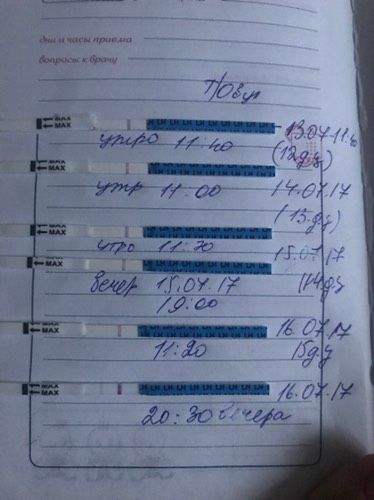 дни и часы приема
вопросы к врачу
т/овул
MAX
13.07 11:40
утро 11:40
(12дц)
MAX
утр 11:00
14.07.17
(13дц)
MAX
утро 11:30
15.07.17
MAX
вечер 15.07.17
(14дц
19:00
MAX
16.07.17
11:20
15дц
MAX
16.07.17
20:30 вечера